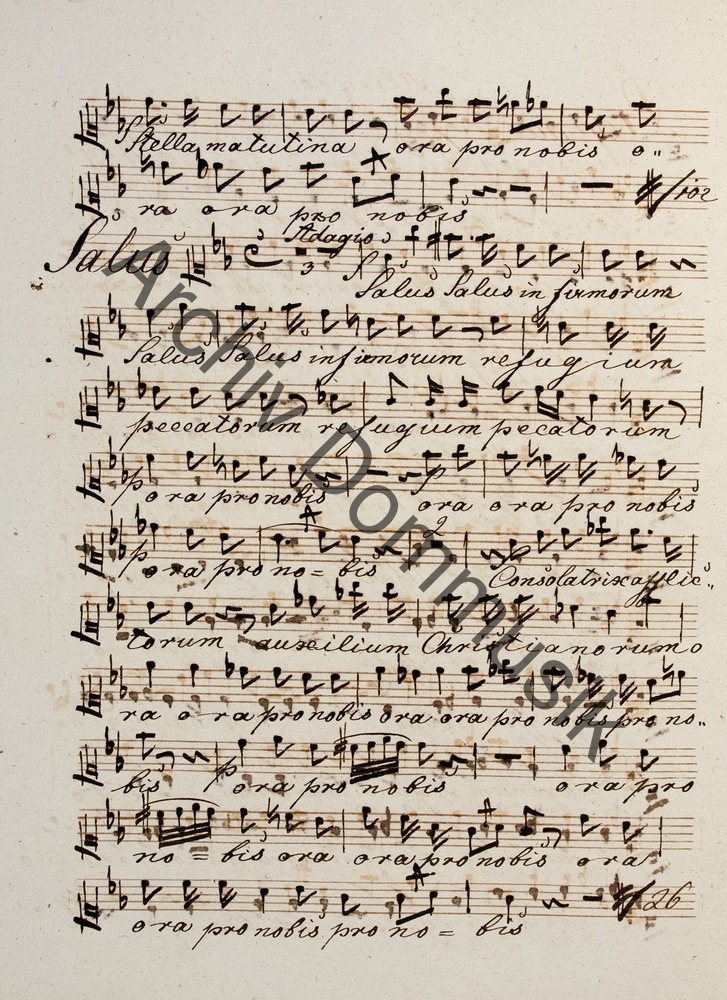 Stella matutina ora pro nobis o„
ra ora pro nobis 102
Salus Adagio 3
Salus Salus in firmorum
Salus Salus infirmorum refugium
peccatorum refugium pecatorum
p ora pro nobis p ora ora pro nobis
2
p ora pro no = bis Consolatrix afflic„
torum auxilium Christianorum o
ra o ra pro nobis ora ora pro nobis pro no„
bis p ora pro nobis ora pro
no = bis ora ora pro nobis ora
26
ora pro nobis pro no = bis
Archiv Dommusik